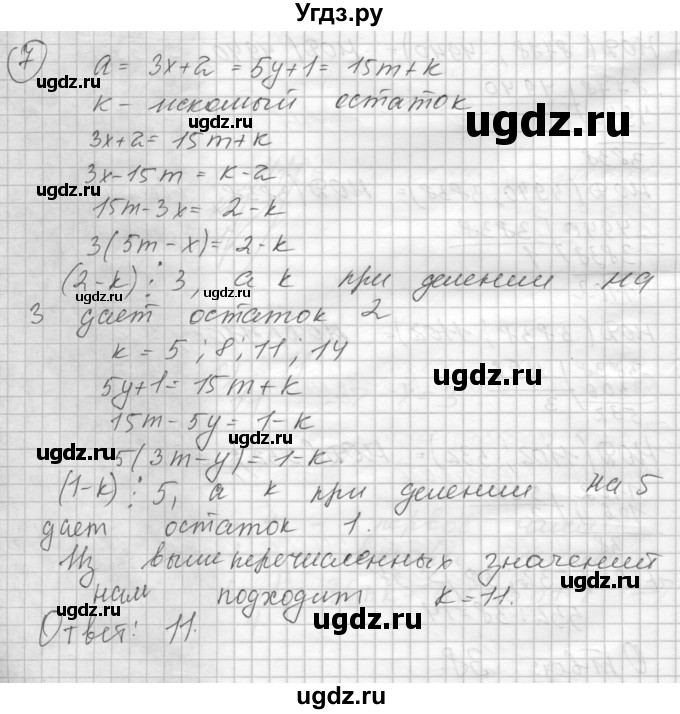 Угдз.ру
7
a = 3x+2 = 5y+1 = 15m+k
k - искомый остаток
3x+2 = 15m+k
3x-15m = k-2
15m-3x = 2-k
3(5m-x) = 2-k
(2-k) ⋮ 3, а k при делении на
3 дает остаток 2
k = 5; 8; 11; 14
5y+1 = 15m+k
15m-5y = 1-k
5(3m-y) = 1-k.
(1-k) ⋮ 5, а k при делении на 5
дает остаток 1.
Из вышеперечисленных значений
нам подходит k=11.
Ответ: 11.
ugdz.ru
ugdz.ru
ugdz.ru
ugdz.ru
ugdz.ru
ugdz.ru
ugdz.ru
ugdz.ru
ugdz.ru
ugdz.ru
ugdz.ru
ugdz.ru
ugdz.ru
ugdz.ru